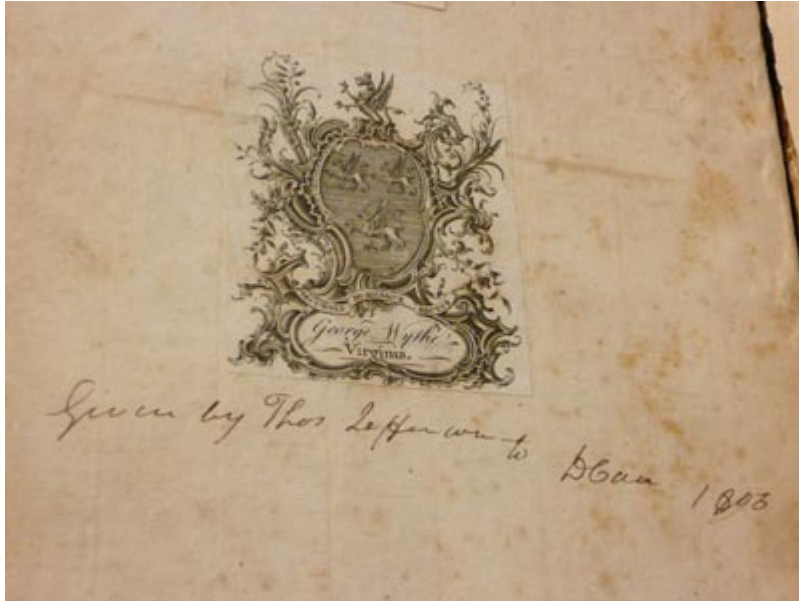 George Wythe
Virginia.
Given by Thos Jefferson to DCarr 1806